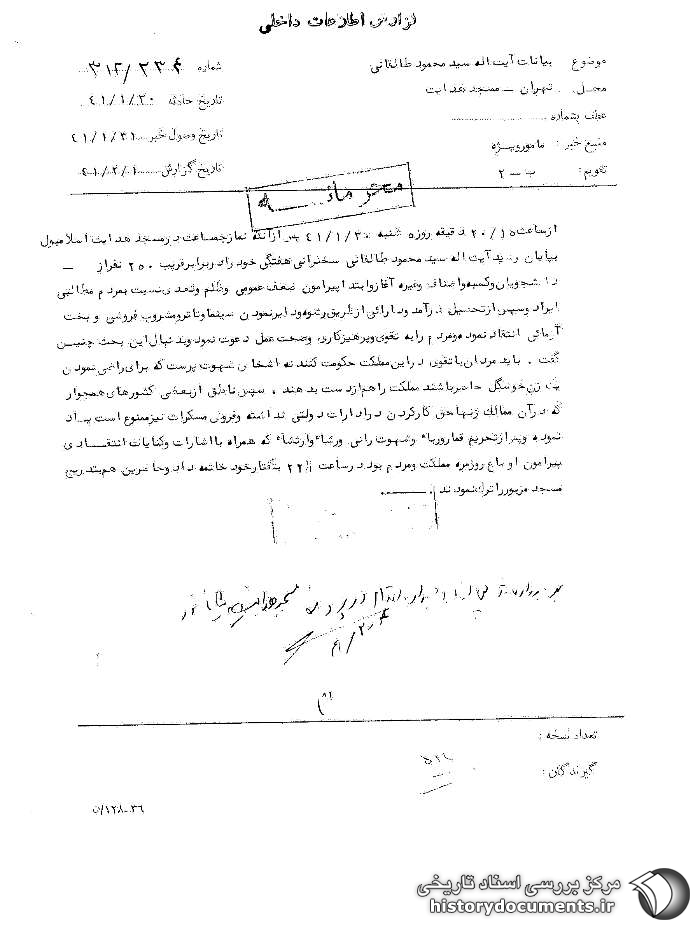 گزارش اطلاعات داخلی
موضوع بیانات آیت اله سید محمود طالقانی
شماره ۳۱۲/۲۳۴
محل. تهران – مسجد هدایت
تاریخ حادثه ۴۱/۱/۳۰
عطف بشماره
تاریخ وصول خبر ۴۱/۱/۳۱
منبع خبر: مامور ویژه
تاریخ گزارش ۴۱/۲/۱
تقویم: ب – ۲
محترمانه
از ساعت ۲۰/۱۵ دقیقه روزه شنبه ۴۱/۱/۳۰ پس از آنکه نماز جماعت در مسجد هدایت اسلامبول
بپایان رسید آیت اله سید محمود طالقانی سخنرانی هفتگی خود را در برابر قریب ۲۵۰ نفر از –
دانشجویان و کسبه و اصناف و غیره آغاز و ابتدا پیرامون ضعف عمومی و ظلم و تعدی نسبت بمردم مطالبی
ایراد و سپس از تحصیل درآمد و دارائی از طریق رشوه و دایر نمودن سینما و تاتر و مشروب فروشی و بخت
آزمائی انتقاد نموده و مردم را به تقوی و پرهیزکاری و صحت عمل دعوت نمود و بدنبال این بحث چنین
گفت . باید مردان با تقوی در این مملکت حکومت کنند نه اشخاص شهوت پرست که برای راضی نمودن
یک زن خوشگل حاضر باشند مملکت را هم از دست بدهند ، سپس ناطق از بعضی کشورهای همجوار
که در آن ممالک زنها حق کار کردن در ادارات دولتی نداشته و فروش مسکرات نیز ممنوع است یاد
نموده و پس از تحریم قمار و ربا و شهوت رانی و رشاء و ارتشاء که همراه با اشارات و کنایات انتقادی
پیرامون اوضاع روزمره مملکت و مردم بود در ساعت ۲۲ بگفتار خود خاتمه داد و حاضرین هم بتدریج
مسجد مزبور را ترک نمودند .
مسجد هدایت
۴/۲/۴۱
تعداد نسخه :
گیرندگان :
۱۲۸-۳۶/ن
مرکز بررسی اسناد تاریخی
historydocuments.ir